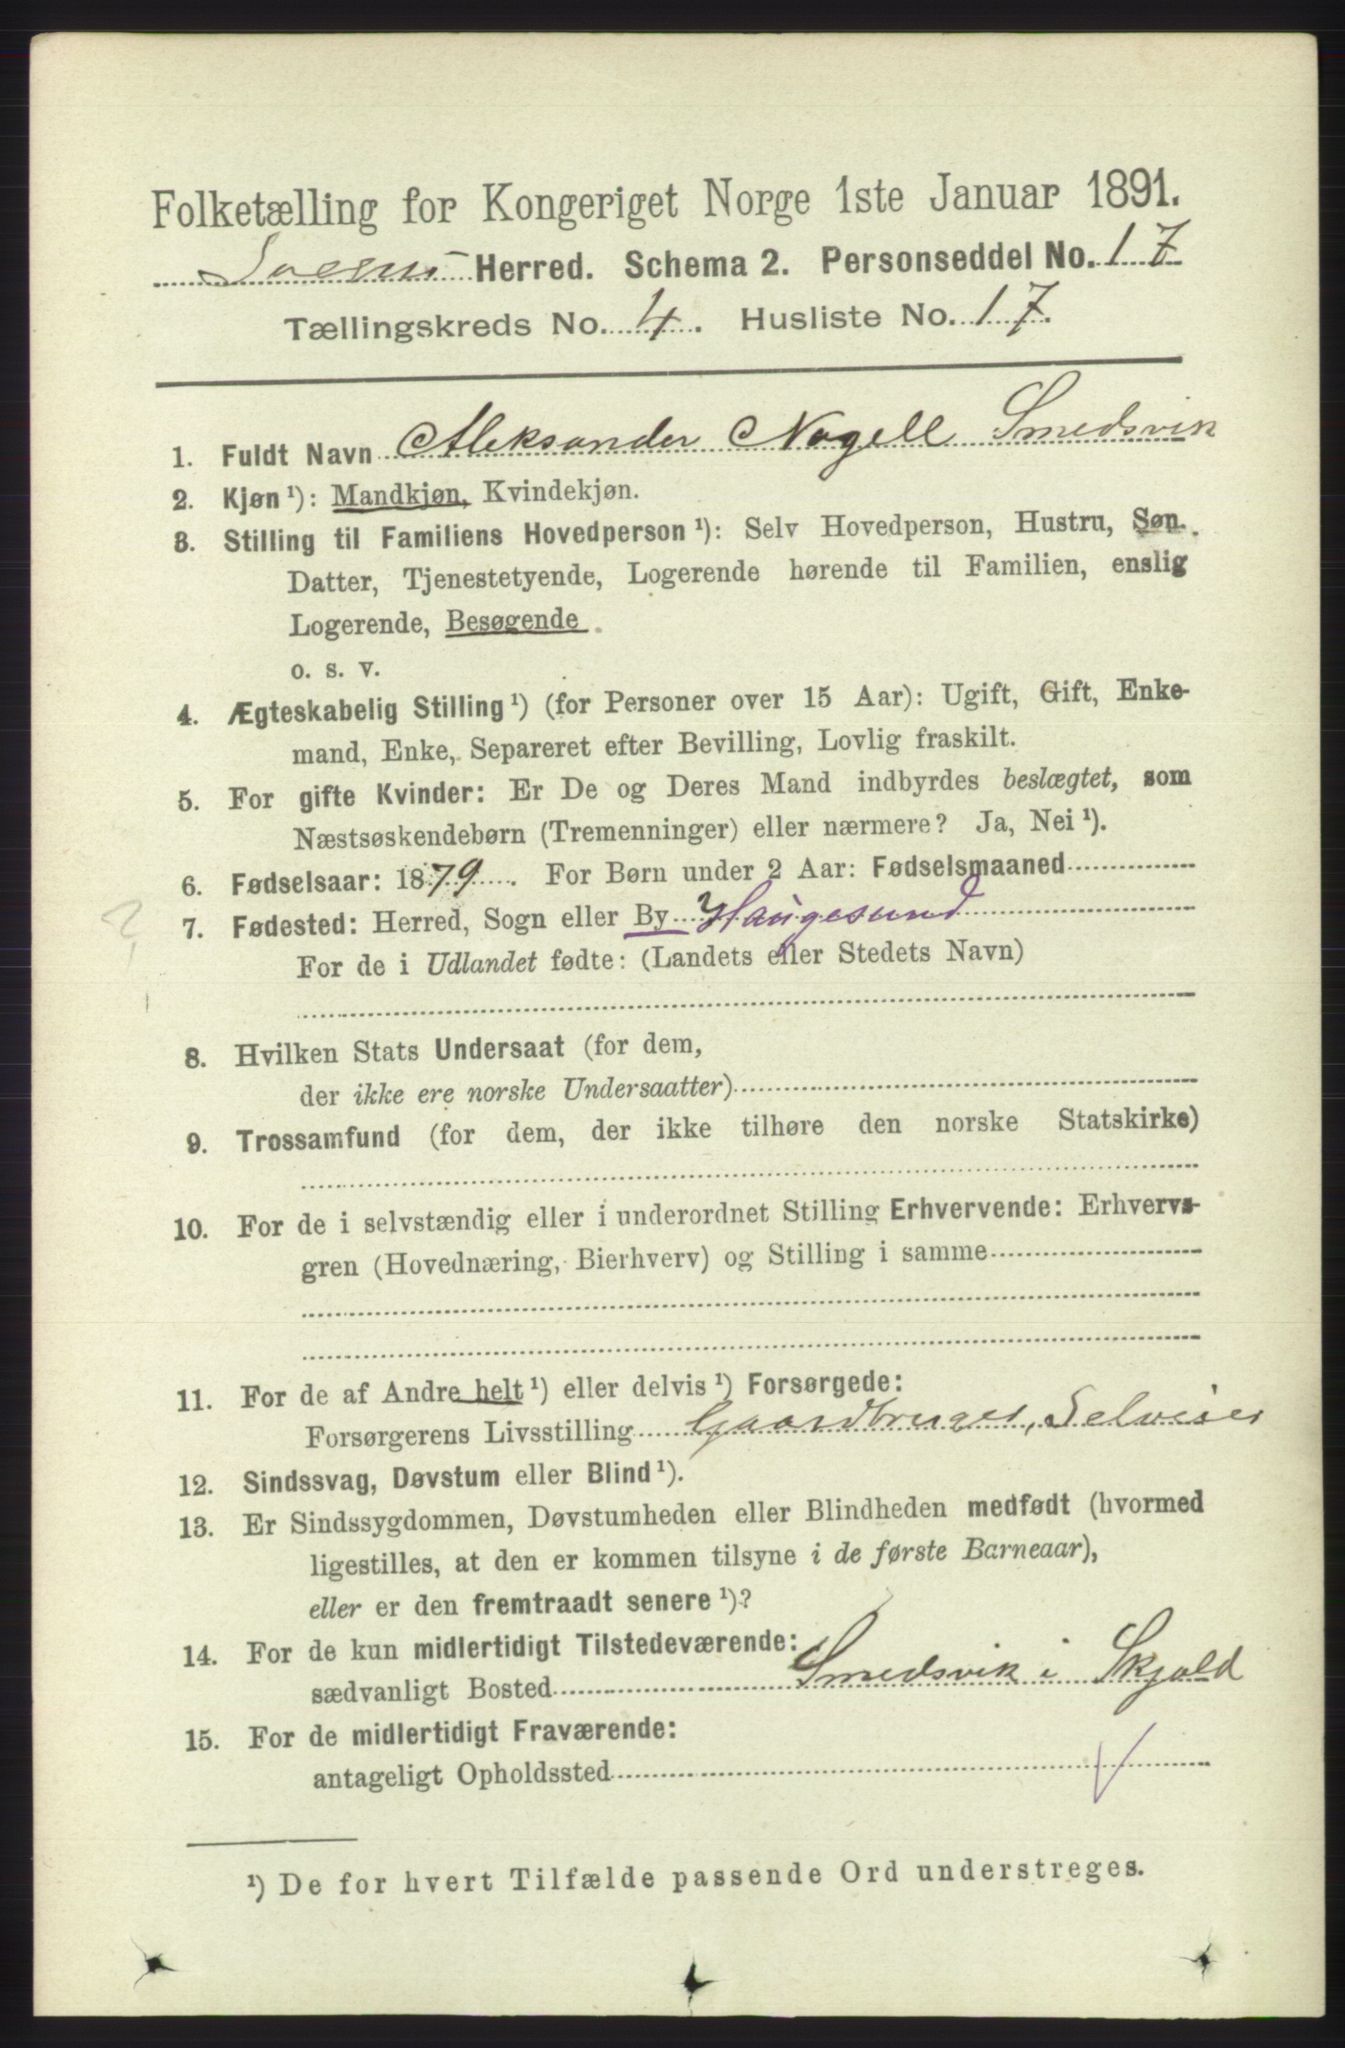 Folketælling for Kongeriget Norge 1ste Januar 1891.
Herred. Schema 2. Personseddel No. 17
Tællingskreds No. 4. Husliste No. 17.
1. Fuldt Navn Aleksander Nagell Smedsvik
2. Kjøn ¹): Mandkjøn, Kvindekjøn.
3. Stilling til Familiens Hovedperson ¹): Selv Hovedperson, Hustru, Søn.
Datter, Tjenestetyende, Logerende hørende til Familien, enslig
Logerende, Besøgende.
o. s. v.
4. Ægteskabelig Stilling ¹) (for Personer over 15 Aar): Ugift, Gift, Enke-
mand, Enke, Separeret efter Bevilling, Lovlig fraskilt.
5. For gifte Kvinder: Er De og Deres Mand indbyrdes beslægtet, som
Næstsøskendebørn (Tremenninger) eller nærmere? Ja, Nei ¹).
6. Fødselsaar: 1879. For Børn under 2 Aar: Fødselsmaaned
7. Fødested: Herred, Sogn eller By Haugesund
For de i Udlandet fødte: (Landets eller Stedets Navn)
8. Hvilken Stats Undersaat (for dem,
der ikke ere norske Undersaatter)
9. Trossamfund (for dem, der ikke tilhøre den norske Statskirke)
10. For de i selvstændig eller i underordnet Stilling Erhvervende: Erhvervs-
gren (Hovednæring, Bierhverv) og Stilling i samme
11. For de af Andre helt ¹) eller delvis ¹) Forsørgede:
Forsørgerens Livsstilling Gaardbruger, Selveier
12. Sindssvag, Døvstum eller Blind ¹).
13. Er Sindssygdommen, Døvstumheden eller Blindheden medfødt (hvormed
ligestilles, at den er kommen tilsyne i de første Barneaar),
eller er den fremtraadt senere ¹)?
14. For de kun midlertidigt Tilstedeværende:
sædvanligt Bosted Smedsvik i Skjold
15. For de midlertidigt Fraværende:
antageligt Opholdssted
¹) De for hvert Tilfælde passende Ord understreges.